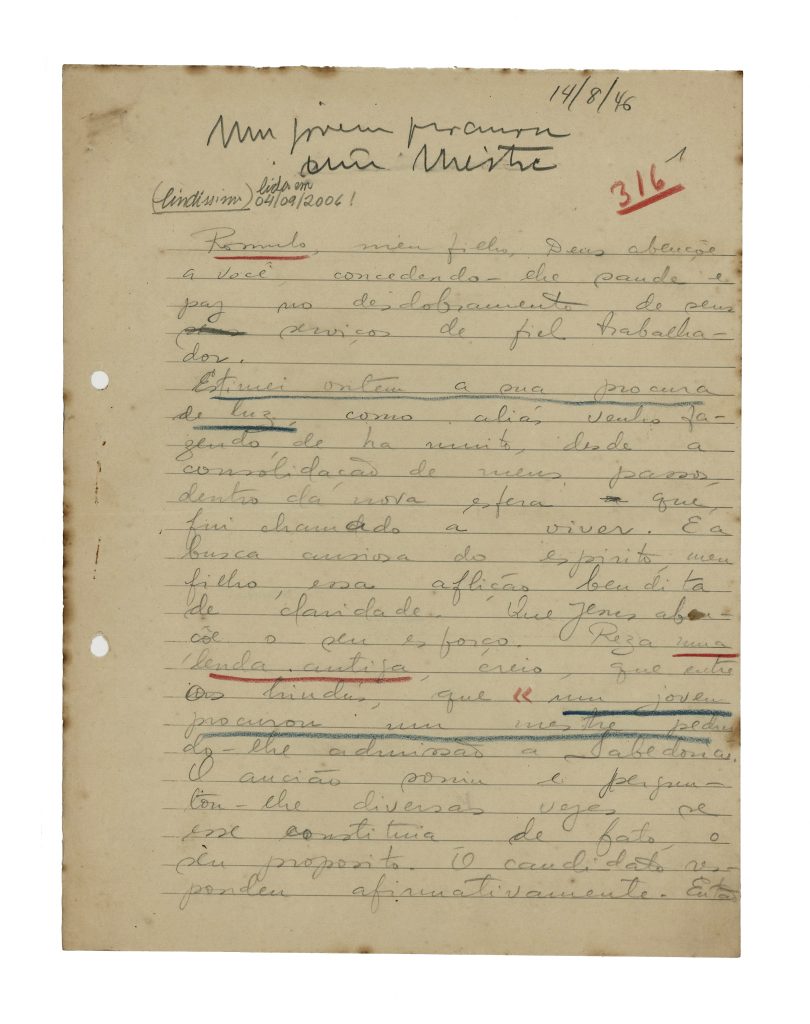 14/8/46
Um jovem procurou
um Mestre
1
316
(lindíssimo) lida em
04/09/2006!
Romulo, meu filho, Deus abençoe
a você, concedendo-lhe saude e
paz no desdobramento de seus
serviços de fiel trabalha-
dor.
Estimei ontem a sua procura
de luz, como aliás venho fa-
zendo, de ha muito, desde a
consolidação de meus passos,
dentro da nova esfera que
fui chamado a viver. É a
busca ansiosa do espirito, meu
filho, essa aflição bendita
de claridade. Que Jesus aben-
çôe o seu esforço. Reza uma
lenda antiga, creio, que entre
os hindús, que « um jovem
procurou um mestre pedin
do-lhe admissão a Sabedoria.
O ancião sorriu e pergun-
tou-lhe diversas vezes se
esse constituia de fato, o
seu proposito. O candidato res-
pondeu afirmativamente. Então